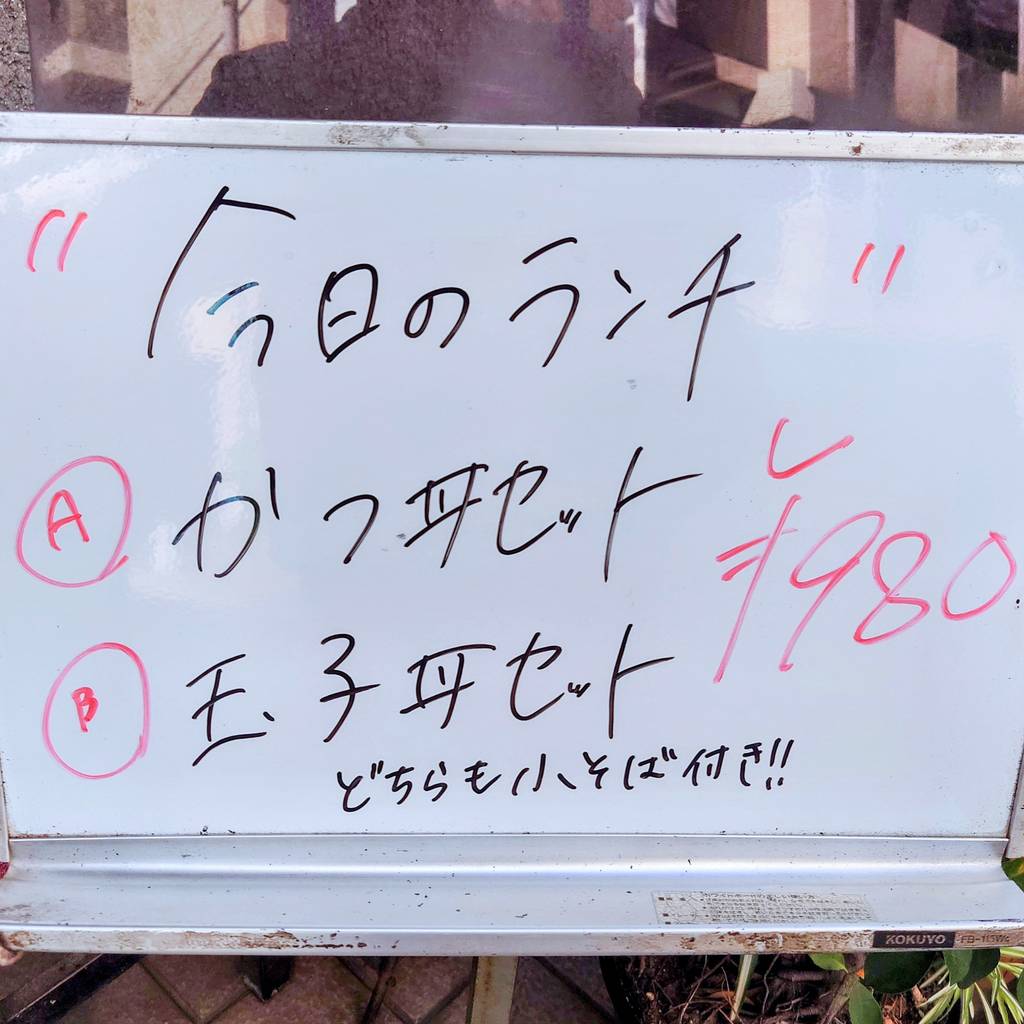 "今日のランチ"
Ⓐ かつ丼セット
¥980
Ⓑ 玉子丼セット
どちらも小そば付き!!
KOKUYO FB-115WC